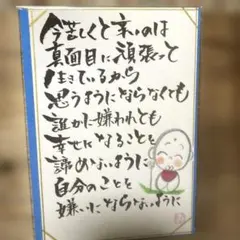 今苦しくと辛いのは
真面目に頑張って
生きているから
思うようにならなくても
誰かに嫌われても
幸せになることを
諦めないように
自分のことを
嫌いにならないように